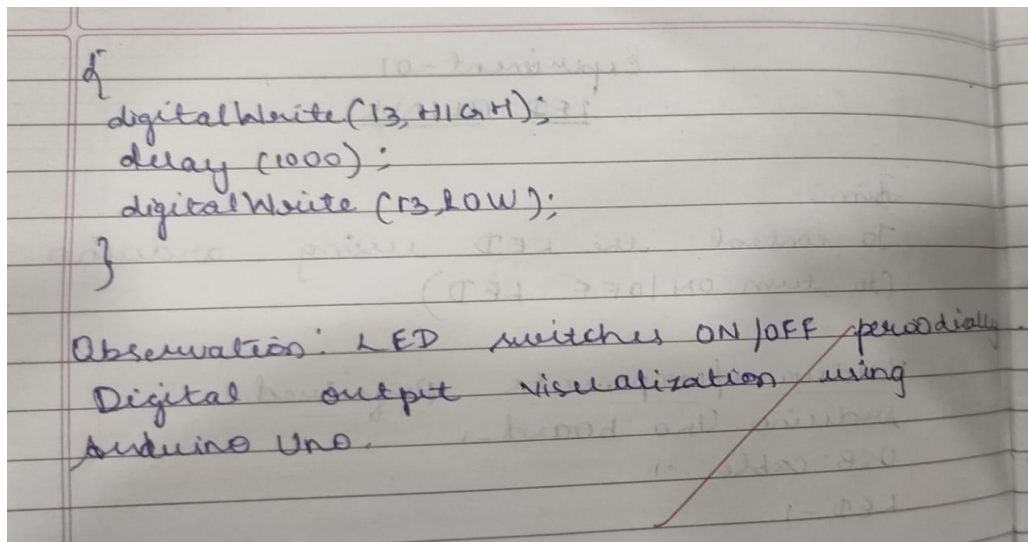 {
digitalWrite(13, HIGH);
delay (1000);
digitalWrite (13, LOW);
}
Observation: LED switches ON/OFF periodially.
Digital output visualization using
Arduino Uno.